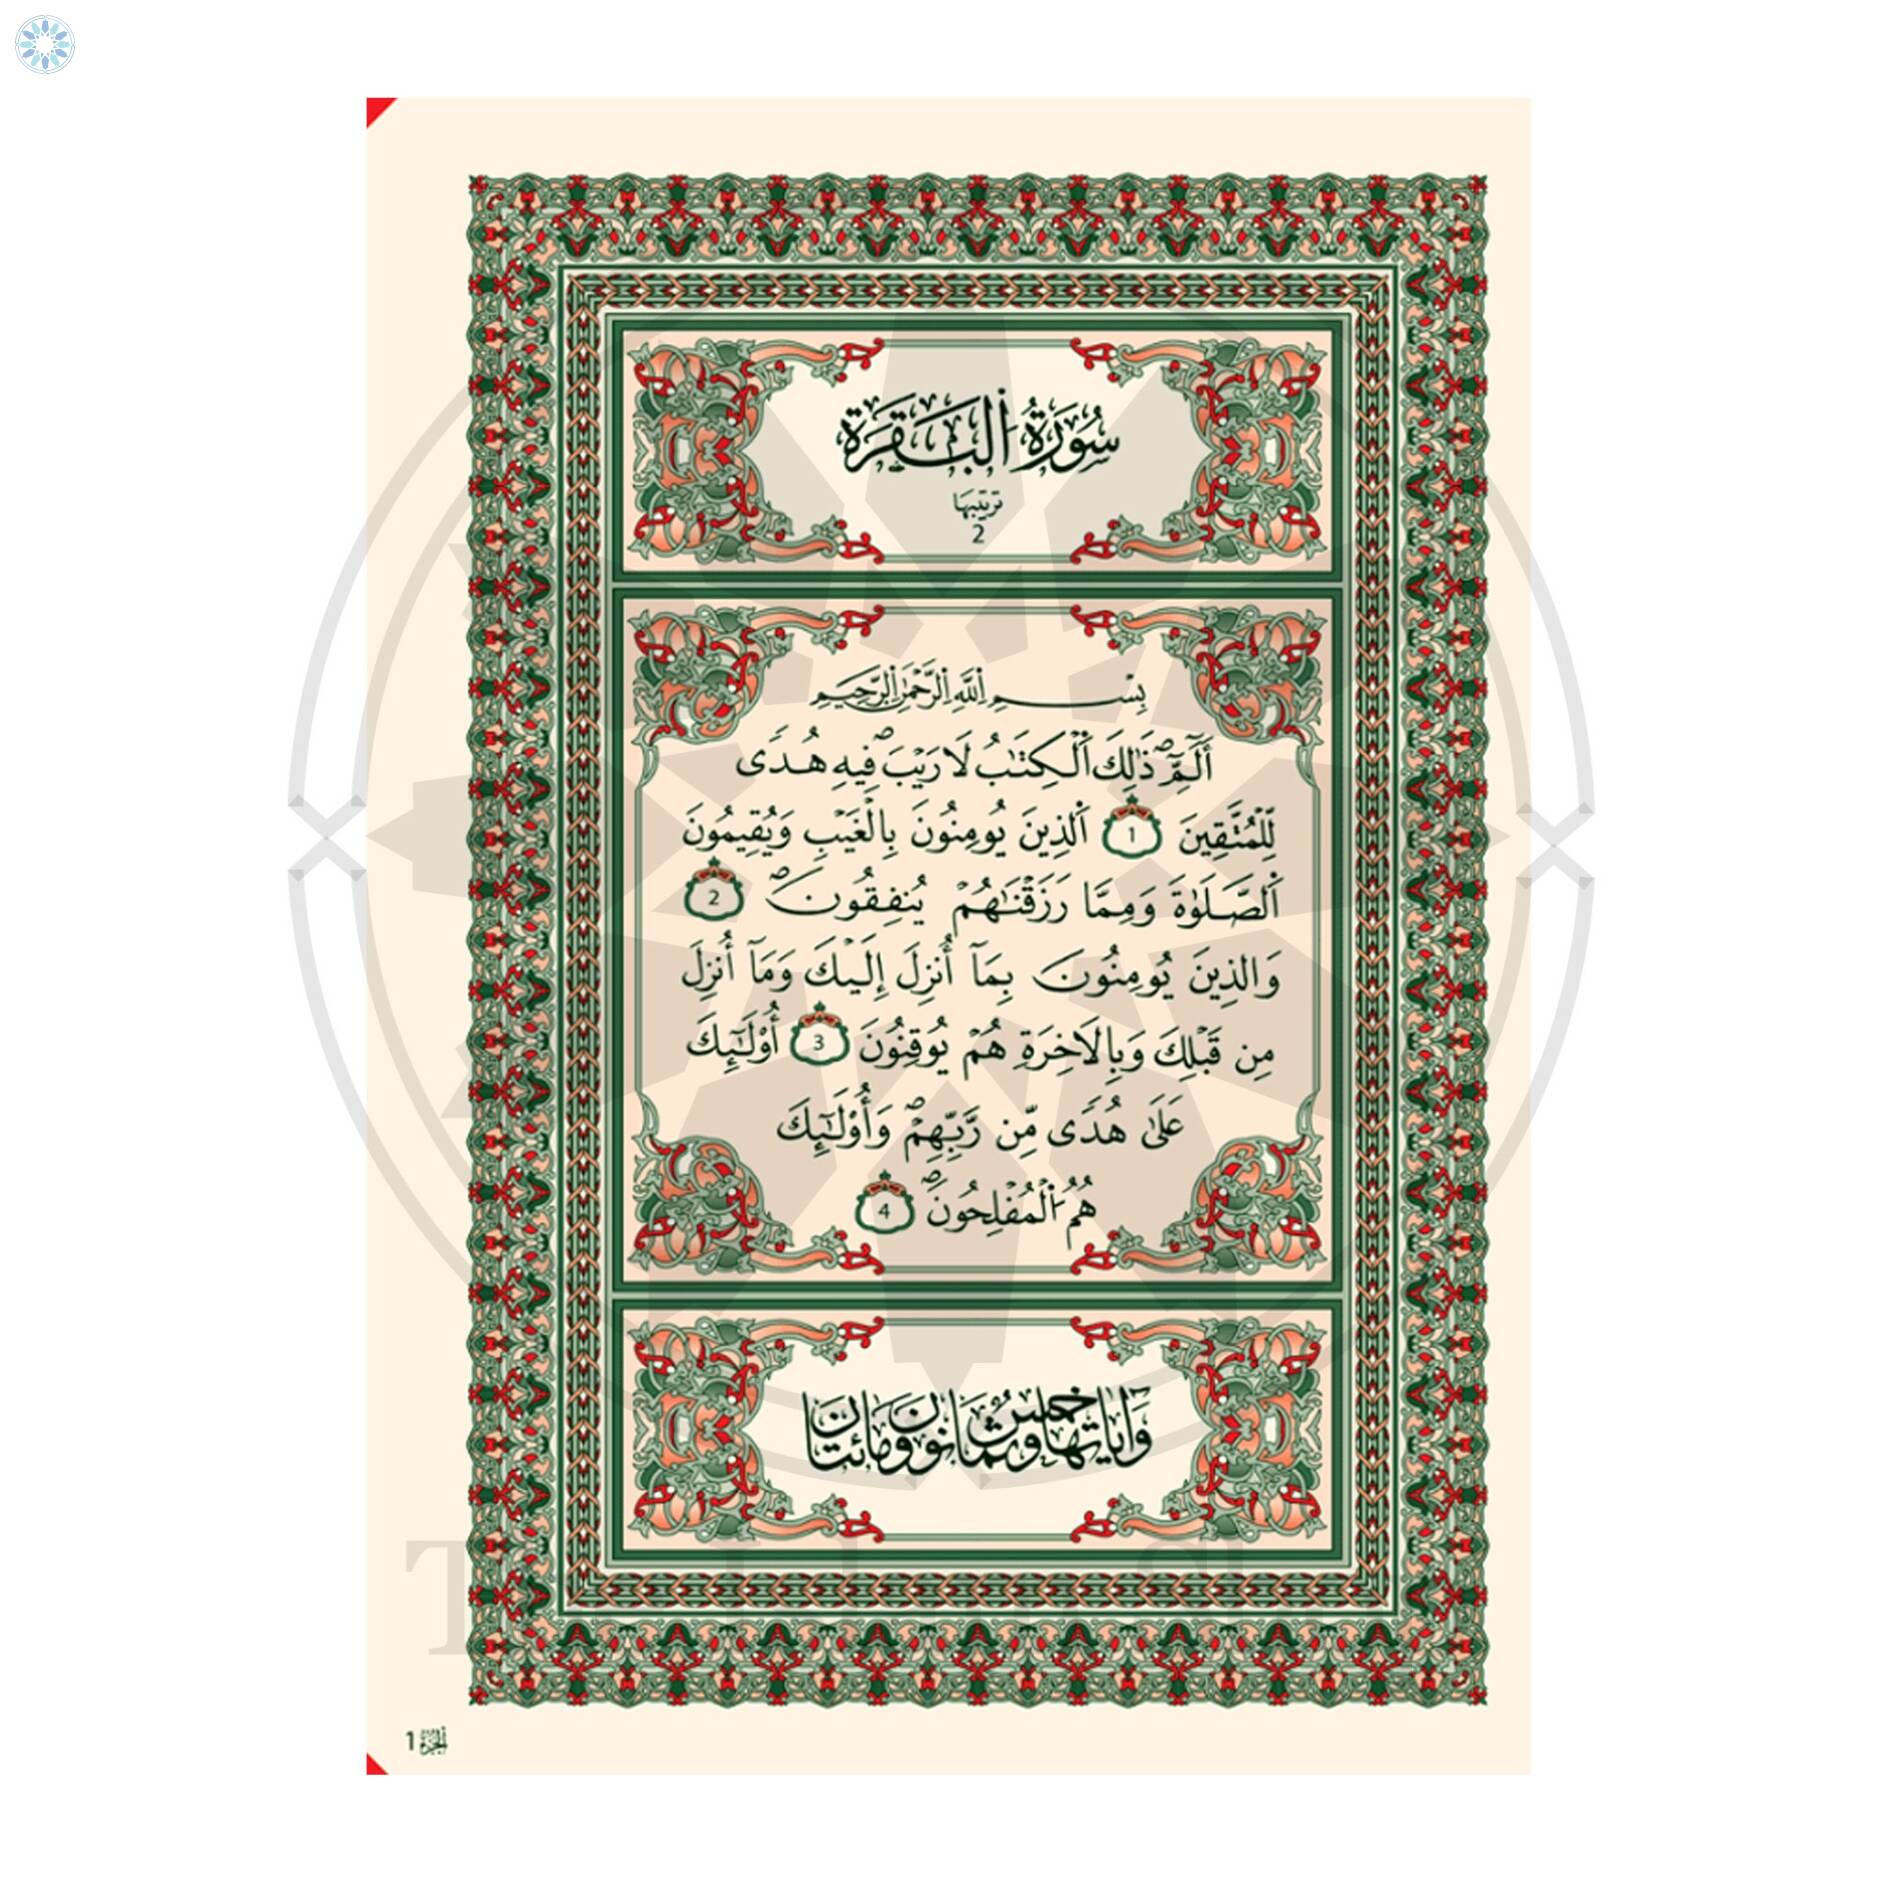 سُورَةُ اُ۬لْبَقَرَةِ
ترتيبها
2
بِسْمِ اِ۬للَّهِ اِ۬لرَّحْمَٰنِ اِ۬لرَّحِيمِ
أَلَٓمِّٓۖ ذَٰلِكَ اَ۬لْكِتَٰبُ لَا رَيْبَۖ فِيهِ هُدىٗ
لِّلْمُتَّقِينَ 1 اَ۬لذِينَ يُومِنُونَ بِالْغَيْبِ وَيُقِيمُونَ
اَ۬لصَّلَوٰةَ وَمِمَّا رَزَقْنَٰهُمْ يُنفِقُونَۖ 2
وَالذِينَ يُومِنُونَ بِمَآ أُنزِلَ إِلَيْكَ وَمَآ أُنزِلَ
مِن قَبْلِكَ وَبِالَاخِرَةِ هُمْ يُوقِنُونَ 3 أُوْلَٰٓئِكَ
عَلَىٰ هُدىٗ مِّن رَّبِّهِمْۖ وَأُوْلَٰٓئِكَ
هُمُ اُ۬لْمُفْلِحُونَۖ 4
وَآيَاتُهَا خَمْسٌ وَثَمَانُونَ وَمِائَتَانِ
الجزء 1